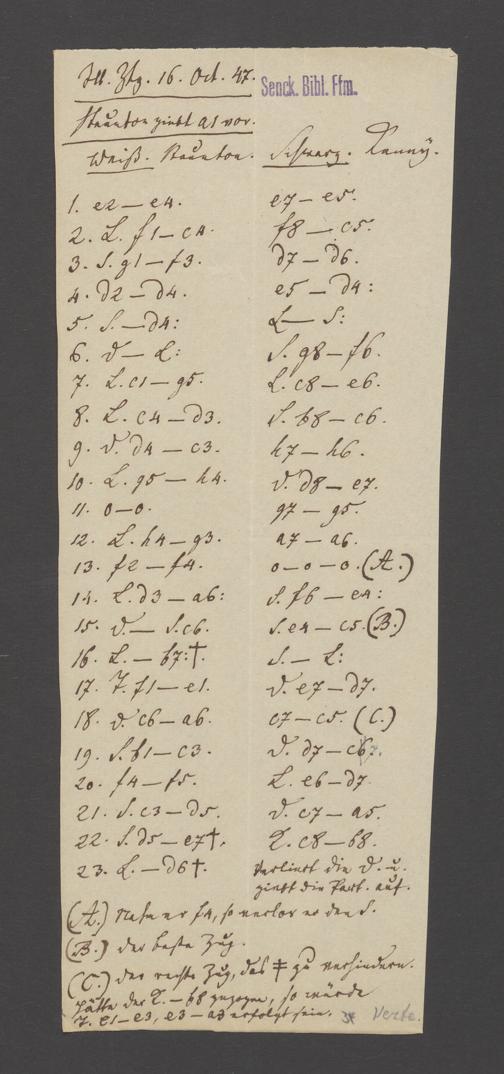 Ill. Ztg. 16. Oct. 47.
Senck. Bibl. Ffm.
Staunton giebt a1 vor.
Weiß. Staunton. Schwarz. Kenny.
1. e2—e4. e7—e5.
2. L. f1—c4. f8—c5.
3. S. g1—f3. d7—d6.
4. d2—d4. e5—d4:
5. S.—d4: L—S:
6. D—L: S. g8—f6.
7. L. c1—g5. L. c8—e6.
8. L. c4—d3. S. b8—c6.
9. D. d4—c3. h7—h6.
10. L. g5—h4. D. d8—e7.
11. o—o. g7—g5.
12. L. h4—g3. a7—a6.
13. f2—f4. o—o—o. (A.)
14. L. d3—a6: S. f6—e4:
15. D.—S. c6. S. e4—c5. (B.)
16. L.—b7:†. S.—L:
17. T. f1—e1. D. e7—d7.
18. D. c6—a6. c7—c5. (C.)
19. S. b1—c3. D. d7—c7.
20. f4—f5. L. e6—d7
21. S. c3—d5. D. c7—a5.
22. S. d5—e7†. K. c8—b8.
23. L.—d6†. verliert die D. u.
giebt die Part. auf.
(A.) Nahm er f4, so verlor er den S.
(B.) der beste Zug.
(C.) der rechte Zug, das ‡ zu verhindern.
Hätte der K.—b8 gezogen, so würde
T. e1—e3, e3—a3 erfolgt sein. Verte.